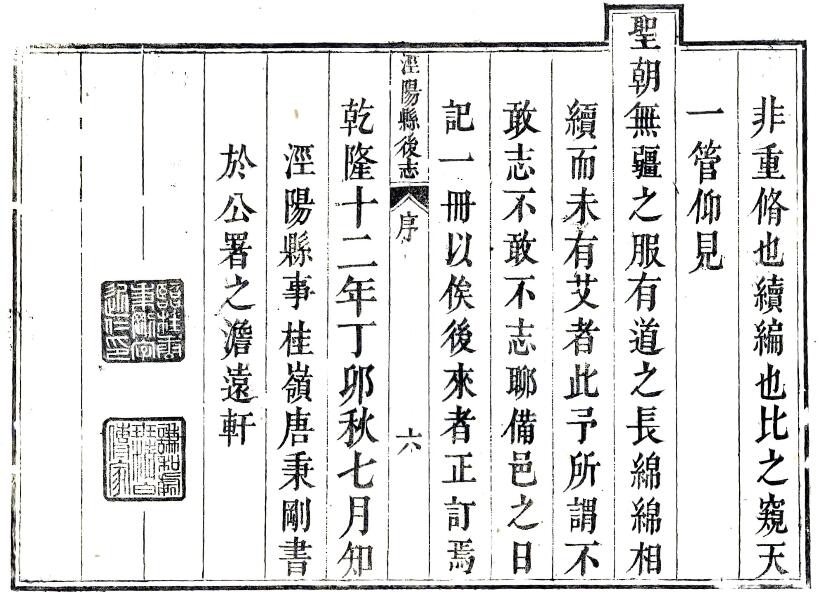 非重脩也續編也比之窺天
一管仰見
聖朝無疆之服有道之長綿綿相
續而未有艾者此予所謂不
敢志不敢不志聊備邑之日
記一冊以俟後來者正訂焉
涇陽縣後志
序
六
乾隆十二年丁卯秋七月知
涇陽縣事桂嶺唐秉剛書
於公署之澹遠軒